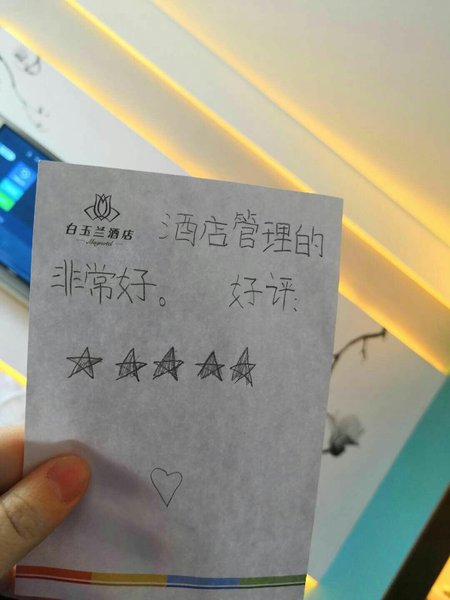 白玉兰酒店
Magnotel
酒店管理的
非常好。 好评: